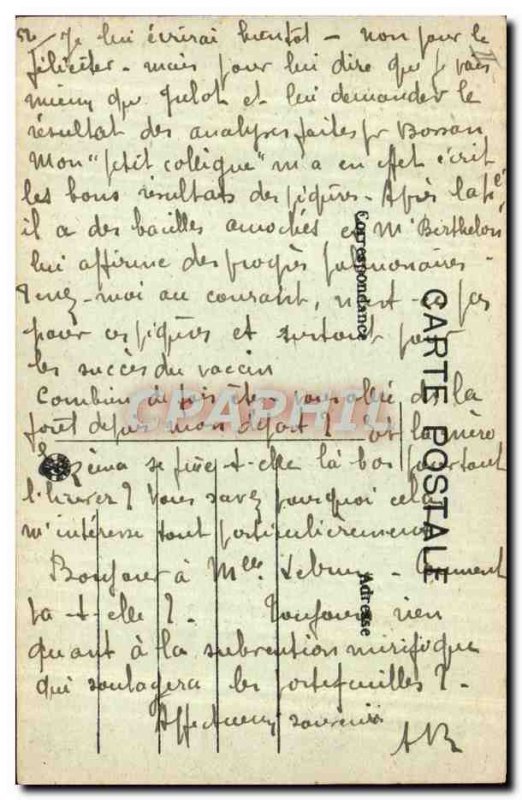 Je lui écrirai bientôt - non pour le
féliciter - mais pour lui dire que je vais
mieux que Gulot et lui demander le
résultat des analyses faites pr Bossan
Mon "petit collègue" m'a en effet écrit
les bons résultats des piqûres - Après la
il a des bacilles amochés et Mr Berthelon
lui affirme des progrès pulmonaires -
Tenez-moi au courant, n'est-ce pas
pour ces piqûres et surtout pour
les succès du vaccin
Combien de fois êtes vous allée de la
forêt depuis mon départ ? et la mère
Zéma se fixe-t-elle là bas pendant
l'hiver ? Vous savez pourquoi cela
m'intéresse tout particulièrement
Bonjour à Melle Lebrun - Comment
va-t-elle ? - Toujours rien
quant à la subvention mirifique
qui soulagera les portefeuilles ? -
Affectueux souvenir
AR
CARTE POSTALE
Correspondance
Adresse
CPARAMA